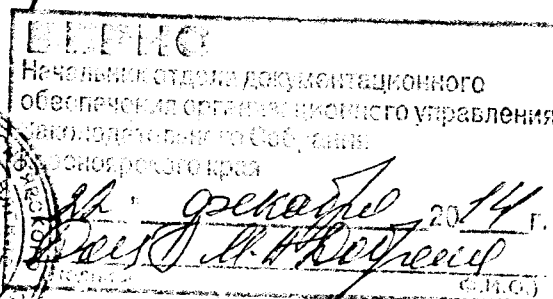 ВЕРНО
Начальник отдела документационного
обеспечения организационного управления
Законодательного Собрания
Красноярского края
22 " декабря 2014 г.
Ф.И.О.)